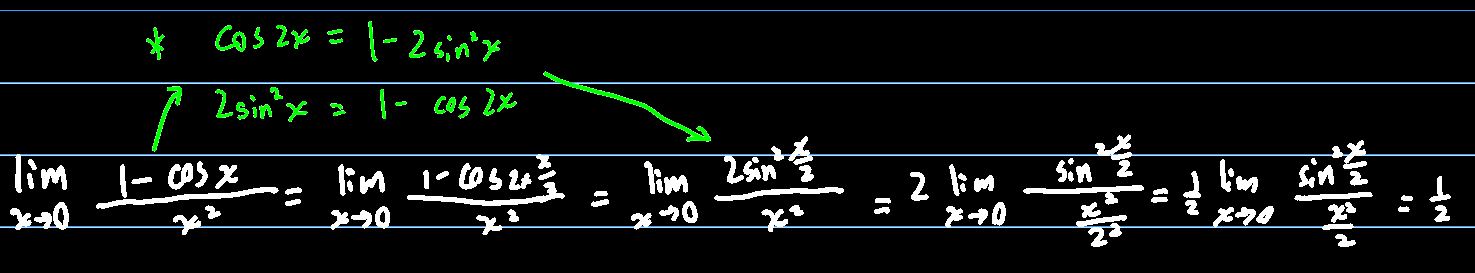 * cos 2x = 1 - 2sin²x
2sin²x = 1 - cos 2x
lim x→0 (1 - cos x)/x² = lim x→0 (1 - cos 2·x/2)/x² = lim x→0 (2sin² x/2)/x² = 2 lim x→0 (sin² x/2)/(x²/2²) = 1/2 lim x→0 (sin² x/2)/(x²/2) = 1/2